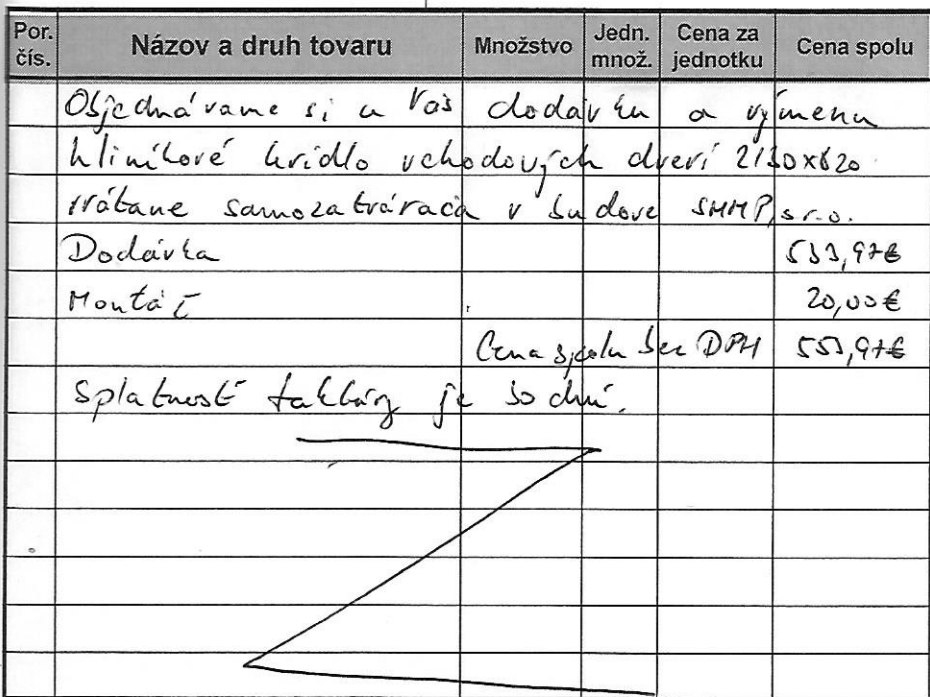 Por. čís. Názov a druh tovaru Množstvo Jedn. množ. Cena za jednotku Cena spolu
Objednávame si u Vás dodávku a výmenu
hliníkové krídlo vchodových dverí 2130x820
vrátane samozatvárača v budove SMMP, s.r.o.
Dodávka 533,97€
Montáž 20,00€
Cena spolu bez DPH 553,97€
Splatnosť faktúry je 30 dní.